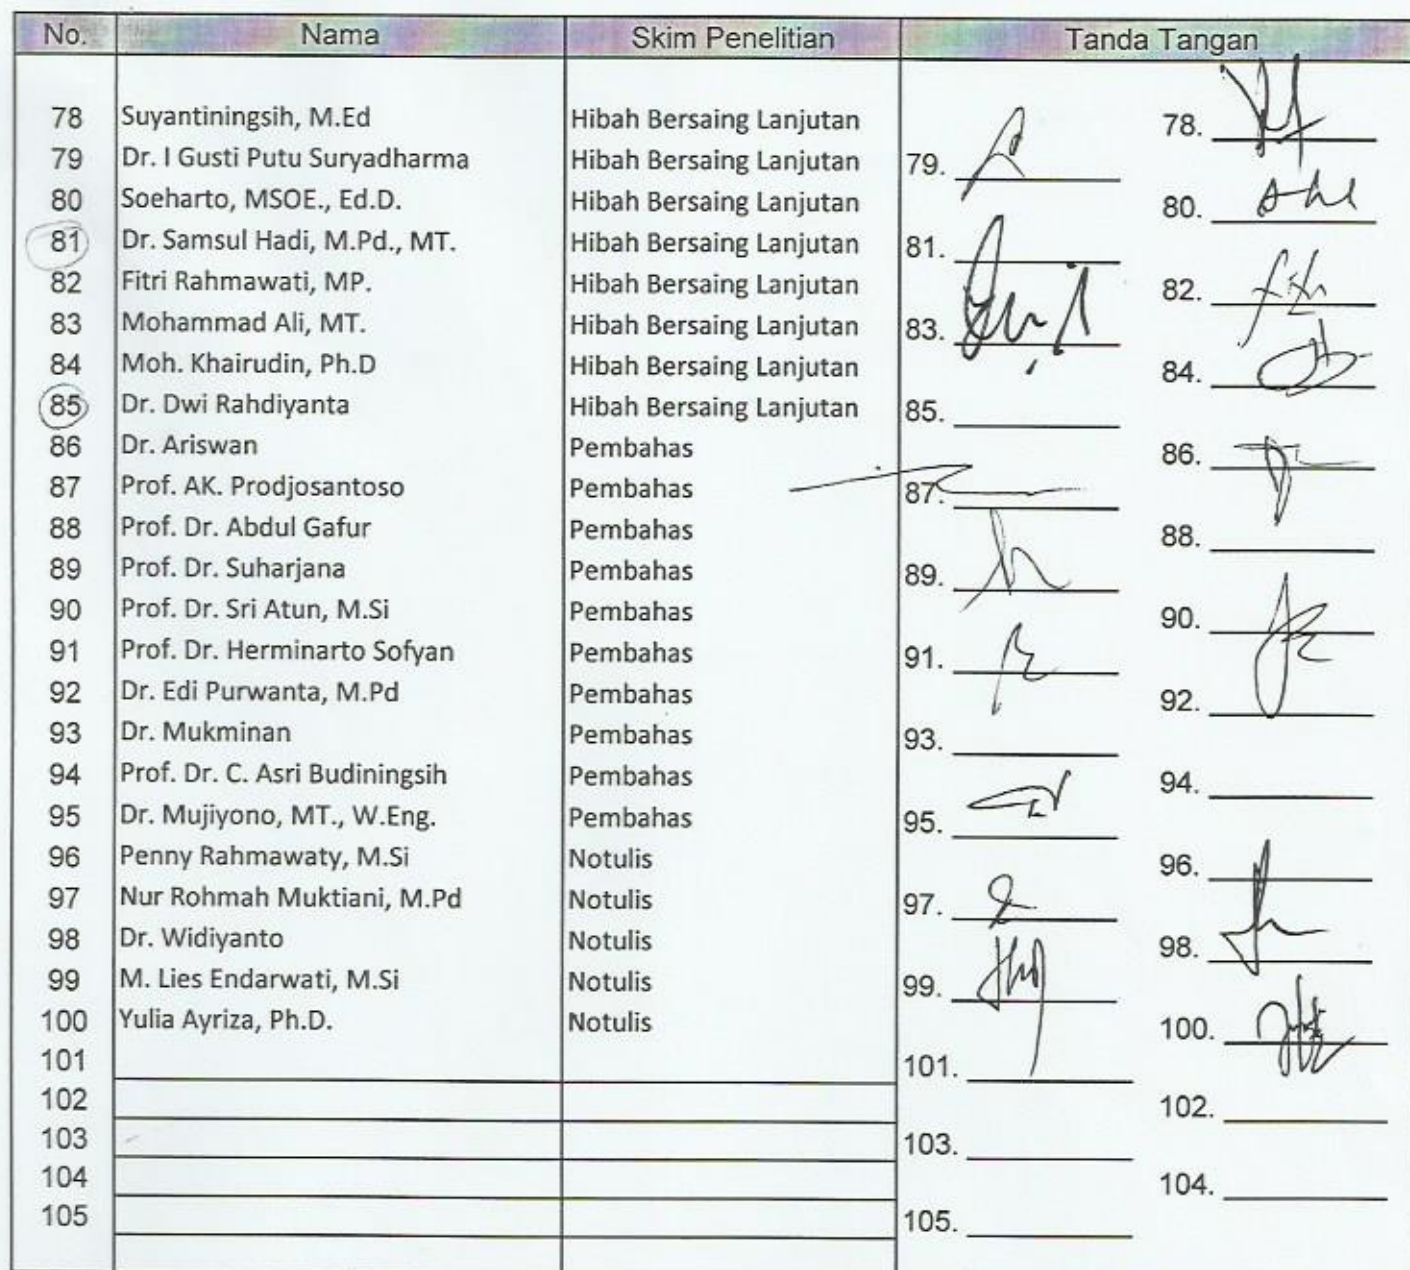 No. Nama Skim Penelitian Tanda Tangan
78 Suyantiningsih, M.Ed Hibah Bersaing Lanjutan 78.
79 Dr. I Gusti Putu Suryadharma Hibah Bersaing Lanjutan 79.
80 Soeharto, MSOE., Ed.D. Hibah Bersaing Lanjutan 80.
81 Dr. Samsul Hadi, M.Pd., MT. Hibah Bersaing Lanjutan 81.
82 Fitri Rahmawati, MP. Hibah Bersaing Lanjutan 82.
83 Mohammad Ali, MT. Hibah Bersaing Lanjutan 83.
84 Moh. Khairudin, Ph.D Hibah Bersaing Lanjutan 84.
85 Dr. Dwi Rahdiyanta Hibah Bersaing Lanjutan 85.
86 Dr. Ariswan Pembahas 86.
87 Prof. AK. Prodjosantoso Pembahas 87.
88 Prof. Dr. Abdul Gafur Pembahas 88.
89 Prof. Dr. Suharjana Pembahas 89.
90 Prof. Dr. Sri Atun, M.Si Pembahas 90.
91 Prof. Dr. Herminarto Sofyan Pembahas 91.
92 Dr. Edi Purwanta, M.Pd Pembahas 92.
93 Dr. Mukminan Pembahas 93.
94 Prof. Dr. C. Asri Budiningsih Pembahas 94.
95 Dr. Mujiyono, MT., W.Eng. Pembahas 95.
96 Penny Rahmawaty, M.Si Notulis 96.
97 Nur Rohmah Muktiani, M.Pd Notulis 97.
98 Dr. Widiyanto Notulis 98.
99 M. Lies Endarwati, M.Si Notulis 99.
100 Yulia Ayriza, Ph.D. Notulis 100.
101 101.
102 102.
103 103.
104 104.
105 105.